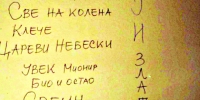 Све на колена
Клече
Цареви Небески
Увек Мионир
Био и остао
И
З
Л
А